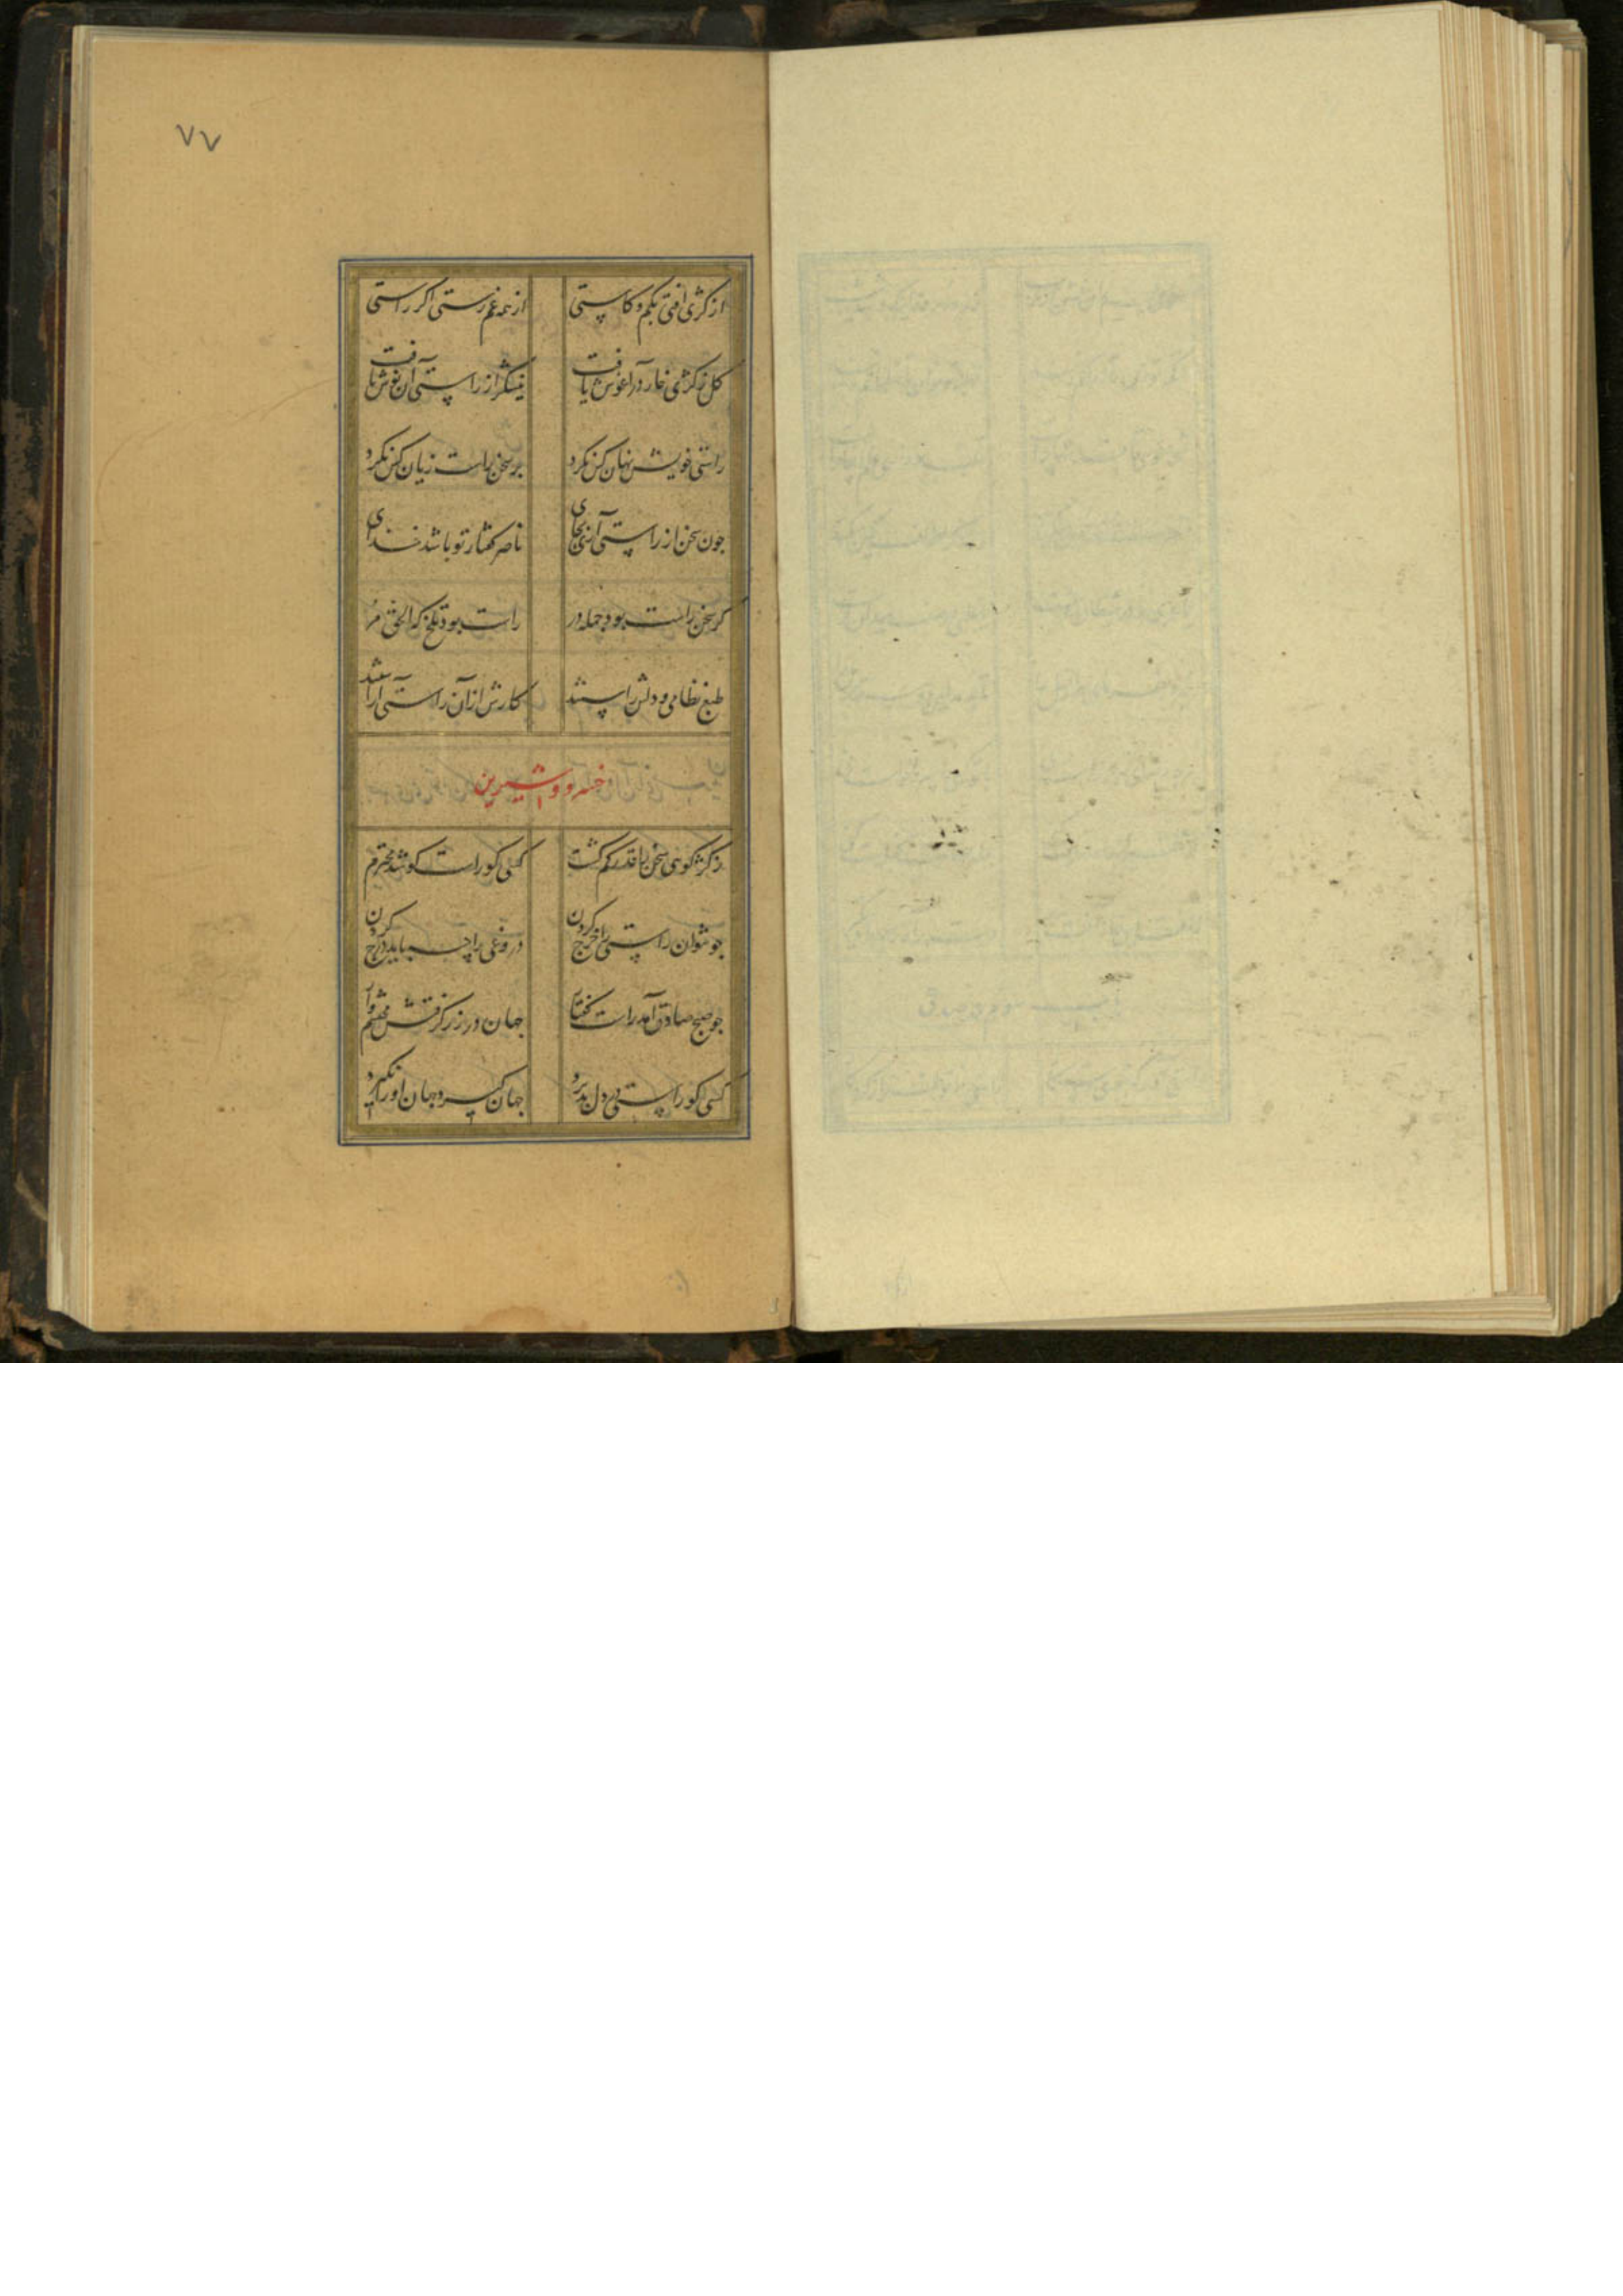 ۷۷
از کژی افتی بکم و کاستی از همه غم رستی اکر راستی
کل ز کژی خار در آغوش یافت نیشکر از راستی آن نوش یافت
راستی خویش نهان کس نکرد بر سخن راست زیان کس نکرد
جون سخن از راستی آری بجای ناصر کفتار تو باشد خدای
کر سخن راست بود جمله در راست بود تلخ که الحق مر
طبع نظامی و دلش راستند کارش ازان راستی آراستند
خسرو و شیرین
ز کژ کویی سخن را قدر کم کشت کسی کو راست کو شد محترم کشت
جو نتوان راستی را درج کردن دروغی را چه باید خرج کردن
جو صبح صادق آمد راست کفتار جهان در زر کرفتش محتشم وار
کسی کو راستی در دل پذیرد جهان کیرد جهان او را نکیرد